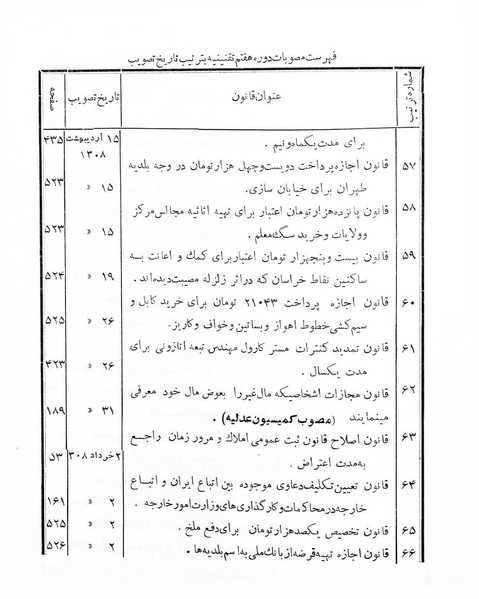 فهرست مصوبات دوره هفتم تقنینیه بترتیب تاریخ تصویب
شماره ترتیب عنوان قانون تاریخ تصویب صفحه
برای مدت یکماه ونیم . ۱۵ اردیبهشت ۱۳۰۸ ۴۳۵
۵۷ قانون اجازه پرداخت دویست وچهل هزار تومان در وجه بلدیه
طهران برای خیابان سازی. ۱۵ « ۵۲۳
۵۸ قانون پانزده هزار تومان اعتبار برای تهیه اثاثیه مجالس مرکز
وولایات و خرید سگ معلم . ۱۵ « ۵۲۳
۵۹ قانون بیست و پنجهزار تومان اعتبار برای کمک و اعانت به
ساکنین نقاط خراسان که در اثر زلزله مصیبت دیده اند. ۱۹ « ۵۲۴
۶۰ قانون اجازه پرداخت ۲۱۰۴۳ تومان برای خرید کابل و
سیم کشی خطوط اهواز و بساتین و خواف و کاریز. ۲۶ « ۵۲۵
۶۱ قانون تمدید کنترات مستر کارول مهندس تبعه اتازونی برای
مدت یکسال. ۲۶ « ۴۲۳
۶۲ قانون مجازات اشخاصیکه مال غیر را بعوض مال خود معرفی
مینمایند (مصوب کمیسیون عدلیه) . ۳۱ « ۱۸۹
۶۳ قانون اصلاح قانون ثبت عمومی املاک و مرور زمان راجع
به مدت اعتراض . ۲ خرداد ۳۰۸ ۵۳
۶۴ قانون تعیین تکلیف دعاوی موجوده بین اتباع ایران و اتباع
خارجه در محاکمات و کارگذاری های وزارت امور خارجه . ۲ « ۱۶۱
۶۵ قانون تخصیص یکصد هزار تومان برای دفع ملخ . ۲ « ۵۲۵
۶۶ قانون اجازه تهیه قرضه از بانک ملی به اسم بلدیه ها . ۲ « ۵۲۶